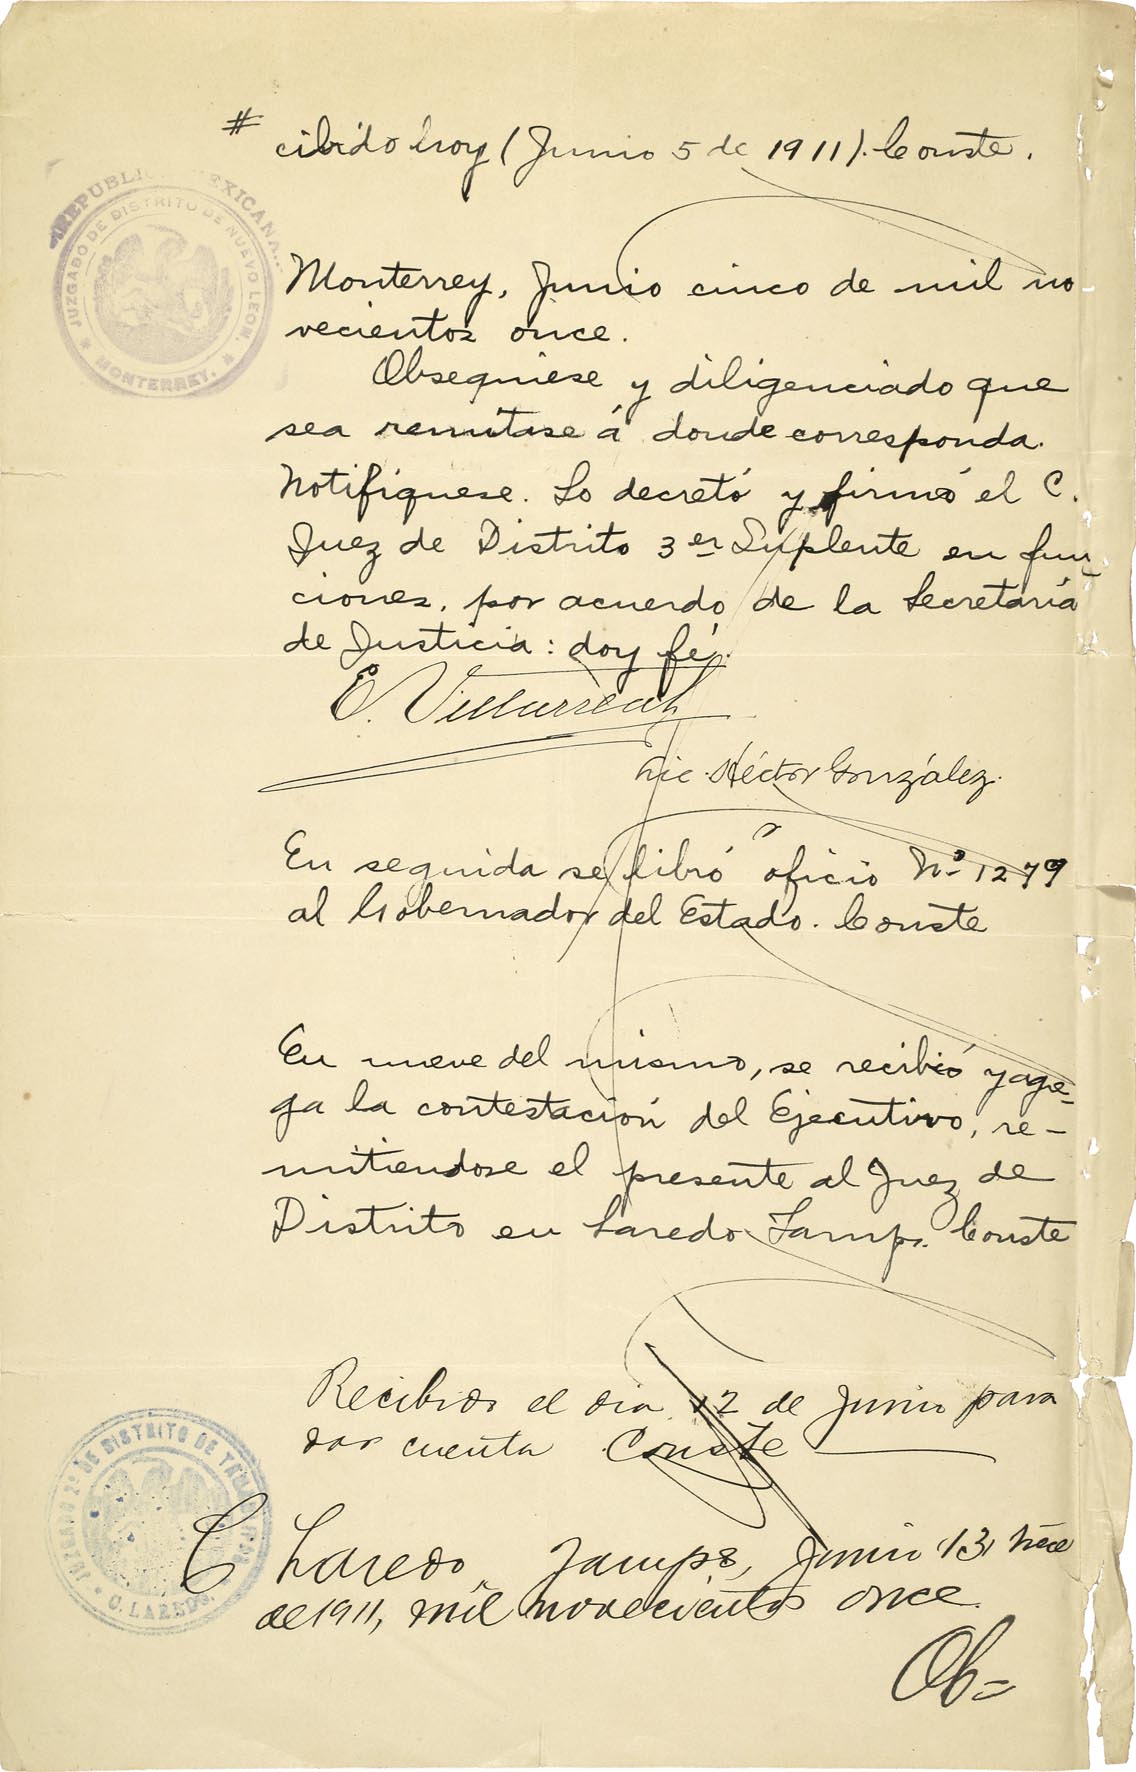 # cibido hoy (Junio 5 de 1911). Conste.
REPUBLICA MEXICANA.
JUZGADO DE DISTRITO DE NUEVO LEON.
* MONTERREY. *
Monterrey, Junio cinco de mil no
vecientos once.
Obsequiese y diligenciado que
sea remitase á donde corresponda.
Notifiquese. Lo decretó y firmó el C.
Juez de Distrito 3er Suplente en fun-
ciones, por acuerdo de la Secretaría
de Justicia: doy fé.
E. Villarreal
Lic. Héctor González.
En seguida se libró oficio No. 1279
al Gobernador del Estado. Conste
En nueve del mismo, se recibió y agre-
ga la contestación del Ejecutivo, re-
mitiendose el presente al Juez de
Distrito en Laredo Tamps. Conste
Recibido el dia 12 de Junio para
dar cuenta Conste
JUZGADO 2º DE DISTRITO DE TAMAULIPAS
* C. LAREDO. *
C Laredo, Tamps, Junio 13, trece
de 1911, mil novecientos once.
Ob=